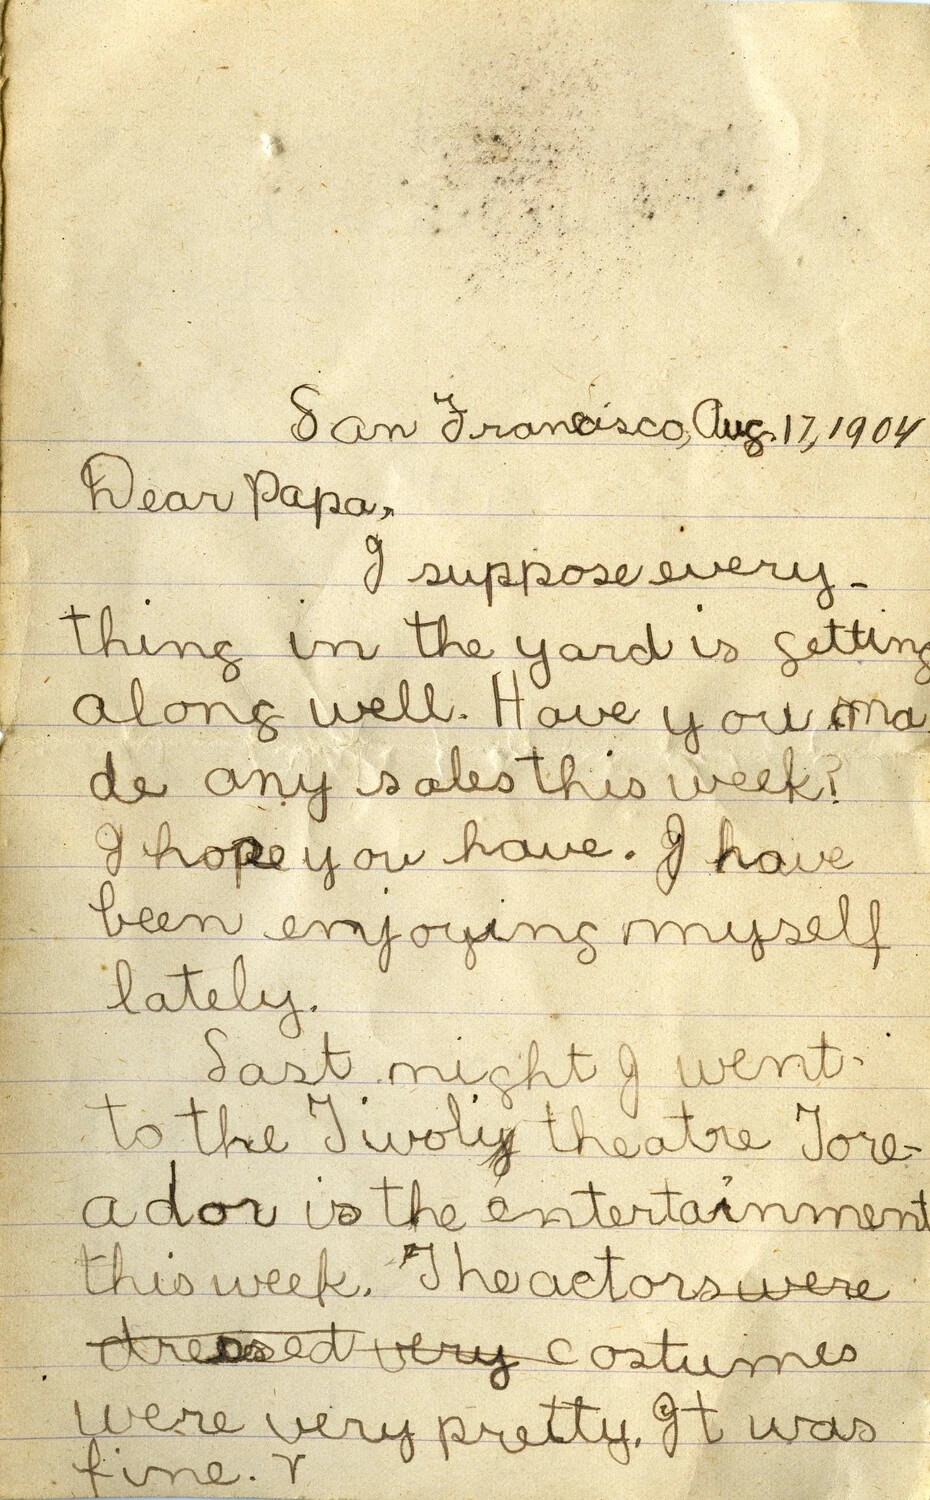 San Francisco, Aug. 17, 1904
Dear Papa,
I suppose every-
thing in the yard is getting
along well. Have you ma
de any sales this week?
I hope you have. I have
been enjoying myself
lately.
Last night I went
to the Tivoly theatre Tore-
ador is the entertainment
this week. The actors were
dressed very costumes
were very pretty. It was
fine.